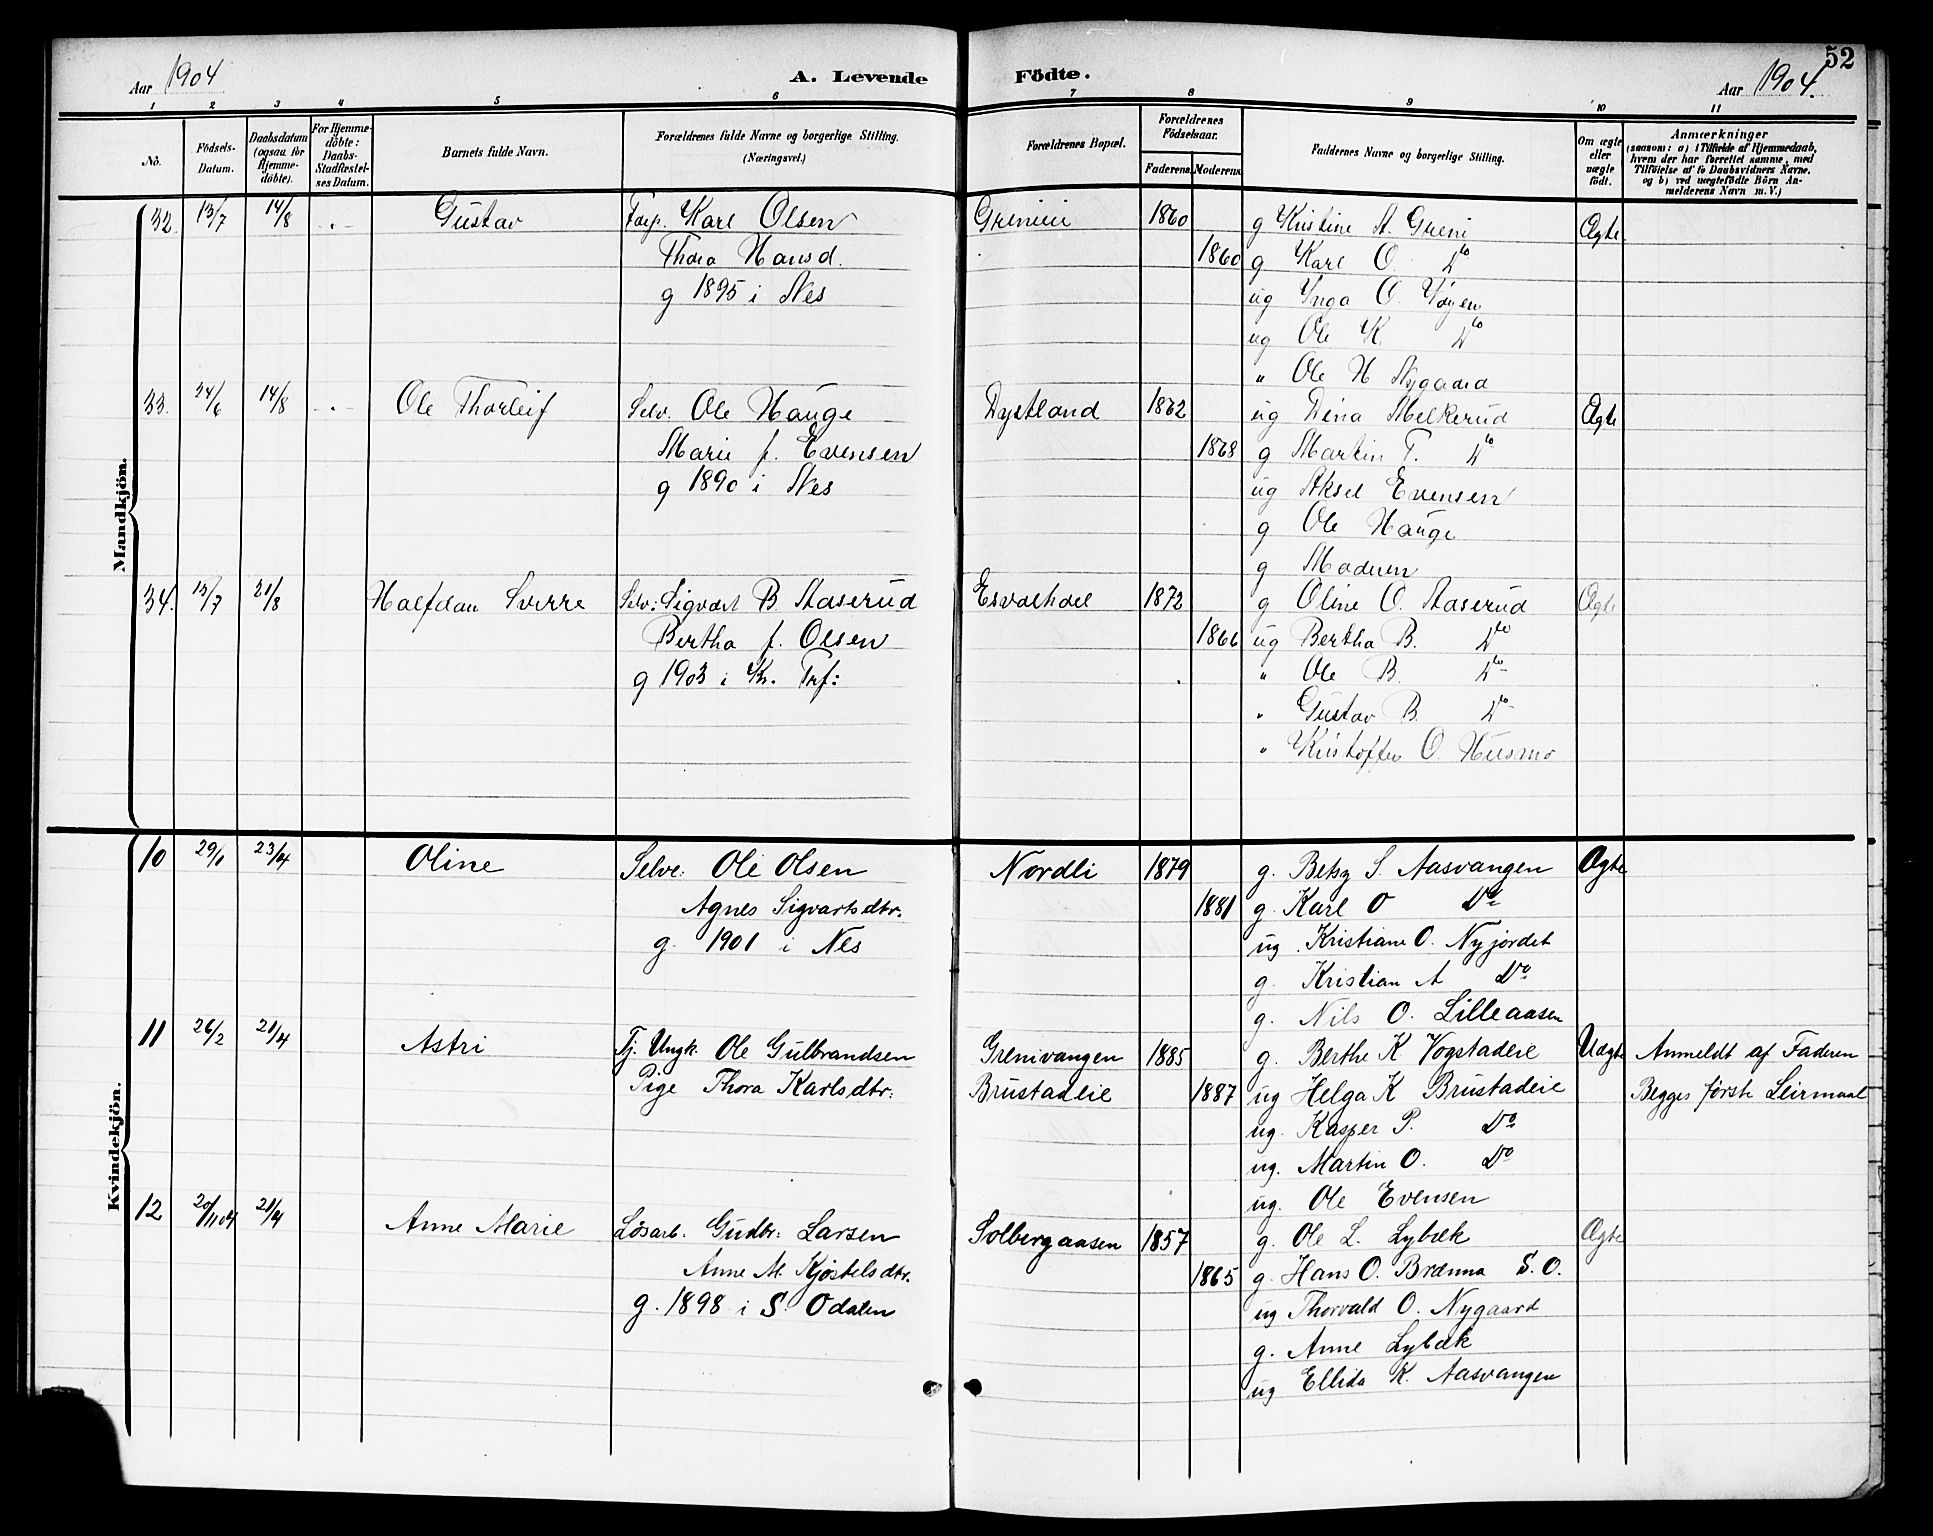 52
Aar 1904 A. Levende Födte. Aar 1904.
1 2 3 4 5 6 7 8 9 10 11
No. Födsels-Datum. Daabsdatum (ogsaa for Hjemme-döbte). For Hjemme-döbte: Daabs-Stadfæstel-ses Datum. Barnets fulde Navn. Forældrenes fulde Navne og borgerlige Stilling. (Næringsvei.) Forældrenes Bopæl. Forældrenes Födselsaar. Faderens. Moderens. Faddernes Navne og borgerlige Stilling. Om ægte eller uægte født. Anmærkninger (saasom: a) i Tilfælde af Hjemmedaab, hvem der har forrettet samme, med Tilföielse af to Daabsvidners Navne, og b) ved uægtefödte Börn An-melderens Navn m. V.)
Mandkjön.
32. 13/7 14/8 Gustav Karl Olsen Grenieie 1860 g Kristine A. Greni Ægte
Thora Hansd. 1860 g Karl O. Do
g 1895 i Nes ug Ynga O. Vøyen
ug Ole K. Do
" Ole H Nygaard
33. 24/6 14/8 Ole Thorleif Selv. Ole Hauge Dystland 1862 ug Dina Melkerud Ægte
Marie f. Evensen 1868 g Martin T. Do
g 1890 i Nes ug Aksel Evensen
g Ole Hauge
g Moderen
34. 13/7 21/8 Halfdan Sverre Selv: Sigvart B. Aaserud Esvalhael 1872 g Oline O. Aaserud Ægte
Bertha f. Olsen 1866 ug Bertha B. Do
g 1903 i Kr. Trf: " Ole B. Do
" Gustav B. Do
" Kristoffer O. Husmo
Kvindekjön.
10 29/1 23/4 Oline Selve: Ole Olsen Nordli 1879 g. Betsy S. Aasvangen Ægte
Agnes Sigvartsdtr. 1881 g. Karl O Do
g. 1901 i Nes ug. Kristiane O. Nyjordet
g. Kristian A Do
g. Nils O. Lilleaasen
11 26/2 21/4 Astri Tj. Ungk. Ole Gulbrandsen Grenivangen 1885 g. Berthe K. Vogstadeie Uægte Anmeldt af Faderen
Pige Thora Karlsdtr: Brustadeie 1887 ug Helga K Brustadeie Begges første Leirmaal
ug. Kasper P. Do
ug. Martin O. Do
ug. Ole Evensen
12 20/1104 21/4 Anne Marie Løsarb. Gudbr: Larsen Solbergaasen 1857 g. Ole L. Lybæk Ægte
Anne M. Kjøstelsdtr. 1865 g. Hans O. Brænna S. O.
g. 1898 i S. Odalen ug Thorvald O. Nygaard
g. Anne Lybæk
ug Ellida K. Aasvangen